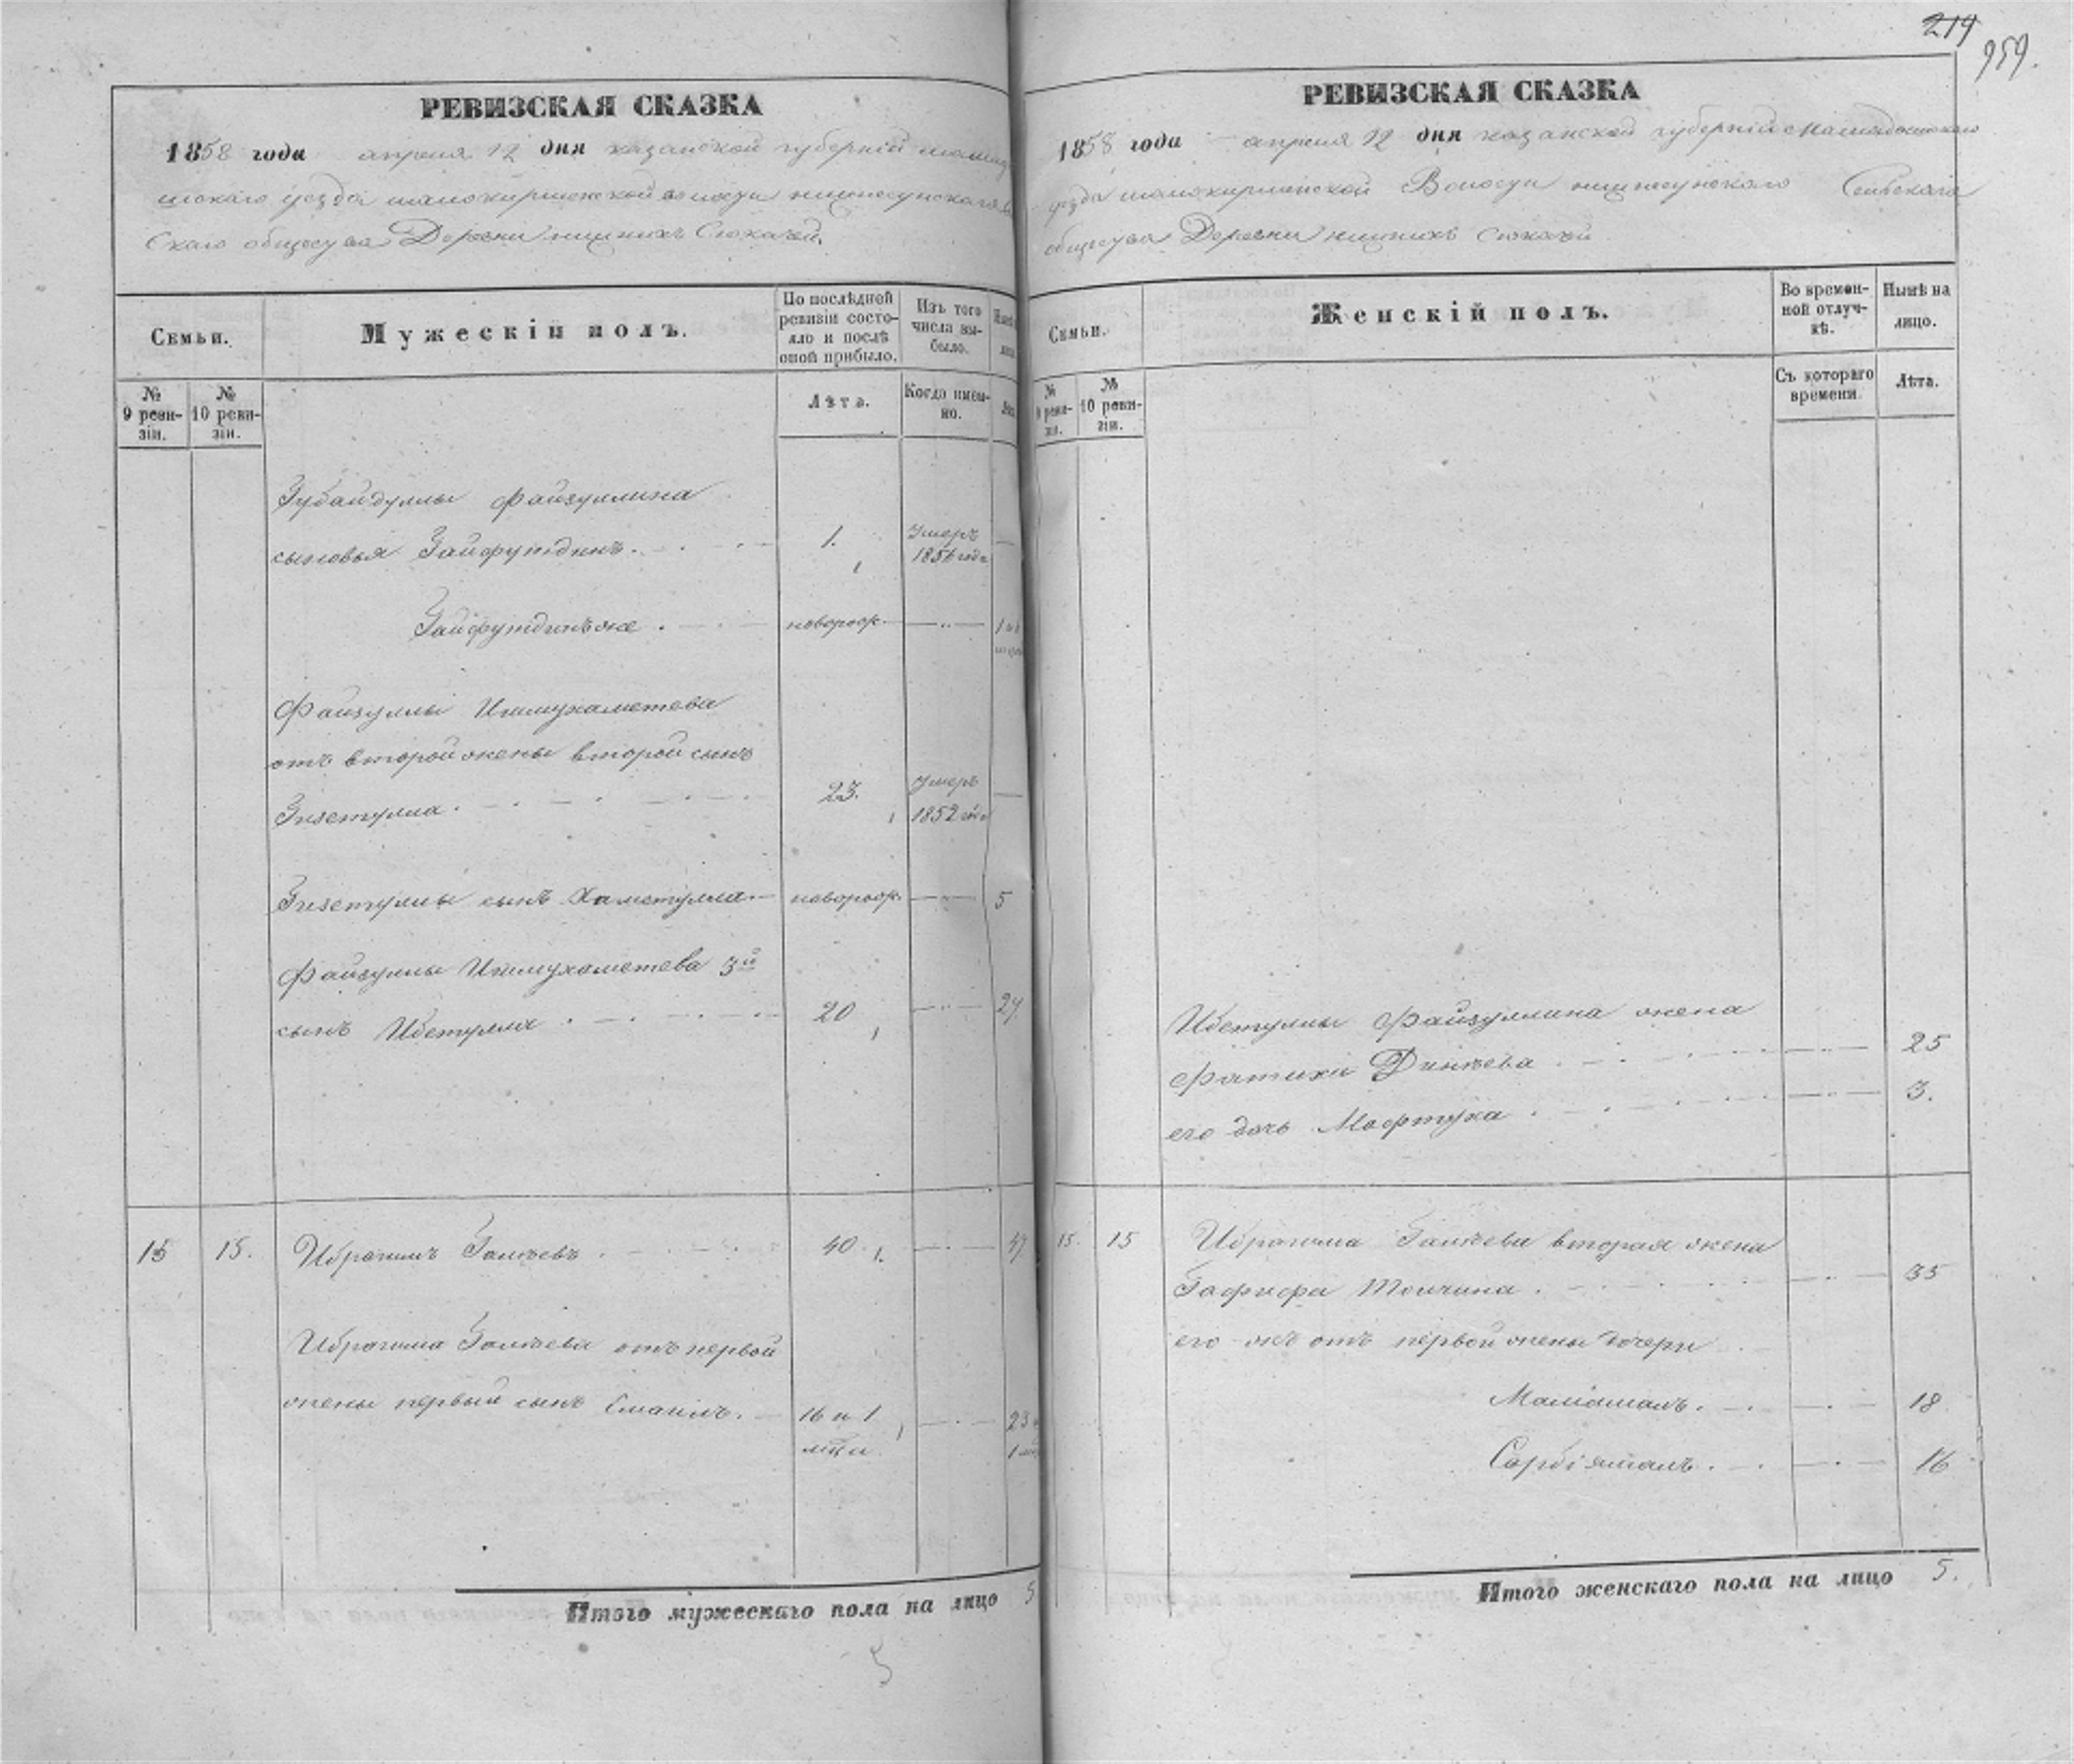 219
959.
РЕВИЗСКАЯ СКАЗКА
1858 года апреля 12 дня казанской губернiи мамады
шскаго уезда
Скаго общества Деревни нижнихъ Сюкачей.
Семьи.
Мужескiй полъ.
По послѣдней ревизiи состояло и послѣ оной прибыло.
Изъ того числа выбыло.
№ 9 ревизiи.
№ 10 ревизiи.
Лѣта.
Когда именно.
Зубайдуллы Файзуллина
сыновья Зайфутдинъ. 1. Умеръ
Зайфутдинъ же новорож.
Файзуллы Ишмухаметева
отъ второй жены второй сынъ
Зизетулла. 23. Умеръ 1852 года
Зизетуллы сынъ Хаметулла новорож. 5
Файзуллы Ишмухаметева 3й
сынъ Ибетулла 20
15 15. Ибрагимъ Галѣевъ 40. 47
Ибрагима Галѣева отъ первой
жены первый сынъ Смаилъ. 16 и 1 мцъ
Итого мужескаго пола на лицо 5
5
РЕВИЗСКАЯ СКАЗКА
1858 года апреля 12 дня казанской губернiи мамадышскаго
уезда Волости Сельскаго
общества Деревни нижнихъ Сюкачей
Семьи.
Женскiй полъ.
Во временной отлучкѣ.
Нынѣ на лицо.
№ 9 ревизiи.
№ 10 ревизiи.
Съ котораго времени.
Лѣта.
Ибетуллы Файзуллина жена
Фатихи Динѣева 25
его дочь Мафтуха 3.
15. 15 Ибрагима Галѣева вторая жена
Гафифа Тойчина. 35
его же отъ первой жены дочери
18
16
Итого женскаго пола на лицо 5.